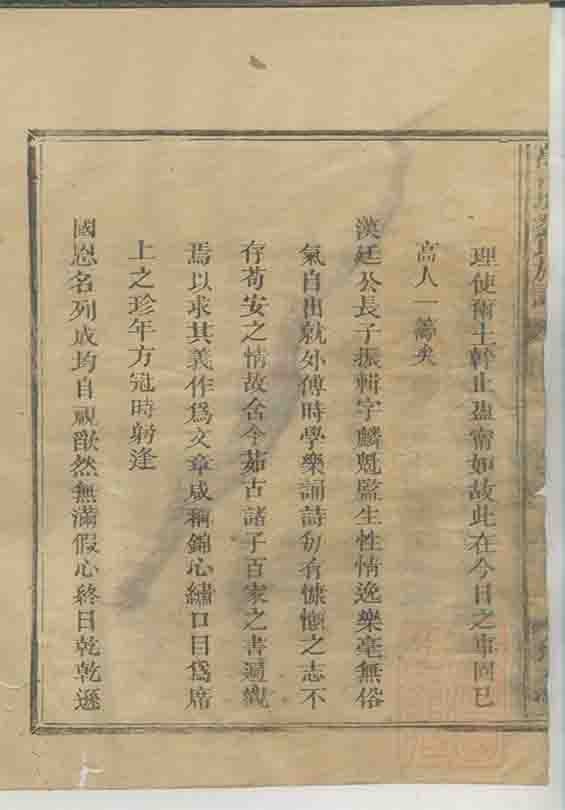 理使爾土幹止盈甯如故此在今日之事固已
高人一籌矣
漢廷公長子振輯字麟魁監生性情逸樂毫無俗
氣自出就外傅時學樂誦詩勿有慷慨之志不
存苟安之情故含今茹古諸子百家之書遍觀
焉以求其義作為文章咸稱錦心繡口目為席
上之珍年方冠時躬逢
國恩名列成均自視歉然無滿假心終日乾乾遜